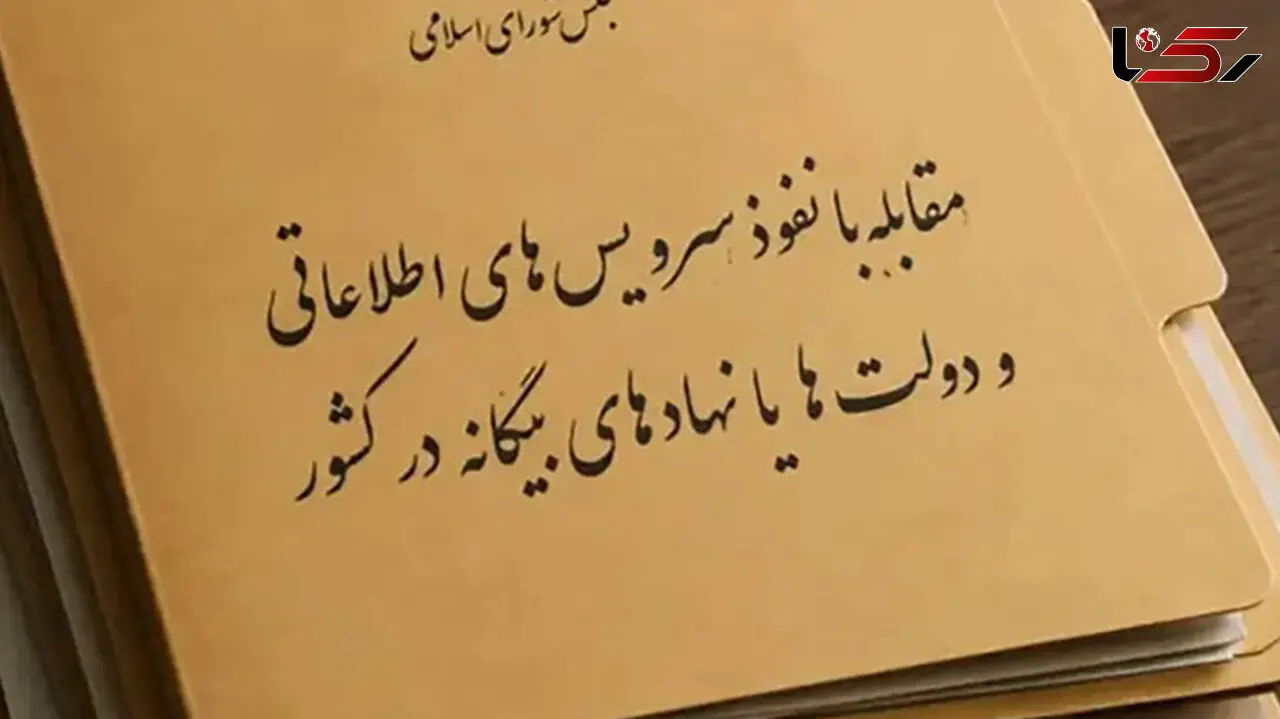 مجلس شورای اسلامی
رکنا
مقابله با نفوذ سرویس های اطلاعاتی
و دولت ها یا نهادهای بیگانه در کشور